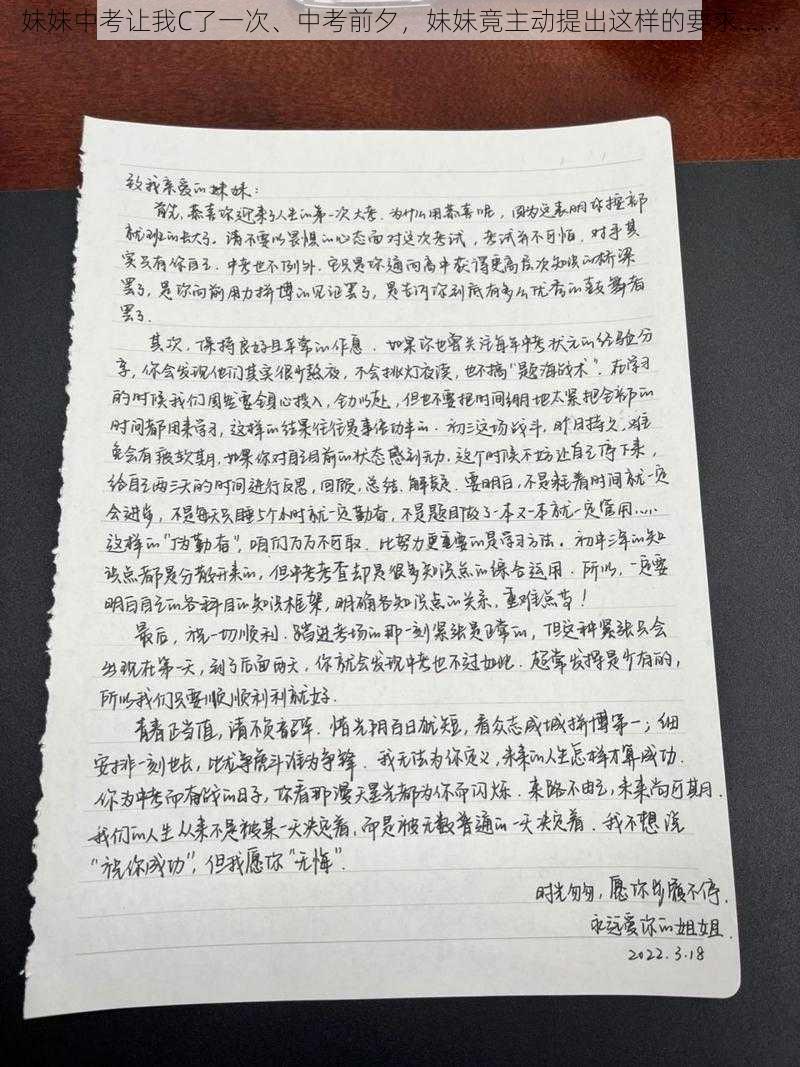 妹妹中考让我C了一次、中考前夕，妹妹竟主动提出这样的要求……
致我亲爱的妹妹：
首先，恭喜你迎来了人生的第一次大考。为什么用恭喜呢，因为这表明你按部
就班的长大了。请不要以畏惧的心态面对这次考试，考试并不可怕，对手其
实只有你自己。中考也不例外，它只是你通向高中获得更高层次知识的桥梁
罢了，是你向前用力拼博的见证罢了，是告诉你到底有多么优秀的鼓舞者
罢了。
其次，保持良好且平常的作息。如果你也曾关注每年中考状元的经验分
享，你会发现他们其实很少熬夜，不会挑灯夜读，也不搞“题海战术”。在学习
的时候我们固然要全身心投入，全力以赴，但也不要把时间绷地太紧把全部的
时间都用来学习，这样的结果往往是事倍功半的。初三这场战斗，旷日持久，难
免会有疲软期，如果你对自己目前的状态感到无力，这个时候不妨让自己停下来，
给自己两三天的时间进行反思，回顾，总结，解疑。要明白，不是耗着时间就一定
会进步，不是每天只睡5个小时就一定勤奋，不是题目做了一本又一本就一定管用……
这样的“伪勤奋”，咱们万万不可取。比努力更重要的是学习方法。初中三年的知
识点都是分散开来的，但中考考查却是很多知识点的综合运用。所以，一定要
明白自己的各科目的知识框架，明确各知识点的关系，重难点等！
最后，祝一切顺利。踏进考场的那一刻紧张是正常的，但这种紧张只会
出现在第一天，到了后面两天，你就会发现中考也不过如此。超常发挥是少有的，
所以我们只要顺顺利利就好。
青春正当值，请不负韶华。惜光阴百日犹短，看众志成城拼博第一；细
安排一刻也长，比龙争虎斗谁为争锋。我无法为你定义，未来的人生怎样才算成功。
你为中考而奋战的日子，你看那漫天星光都为你而闪烁。来路不由己，未来尚可期。
我们的人生从来不是被某一天决定着，而是被无数普通的一天决定着。我不想说
“祝你成功”，但我愿你“无悔”。
时光匆匆，愿你步履不停。
永远爱你的姐姐.
2022.3.18